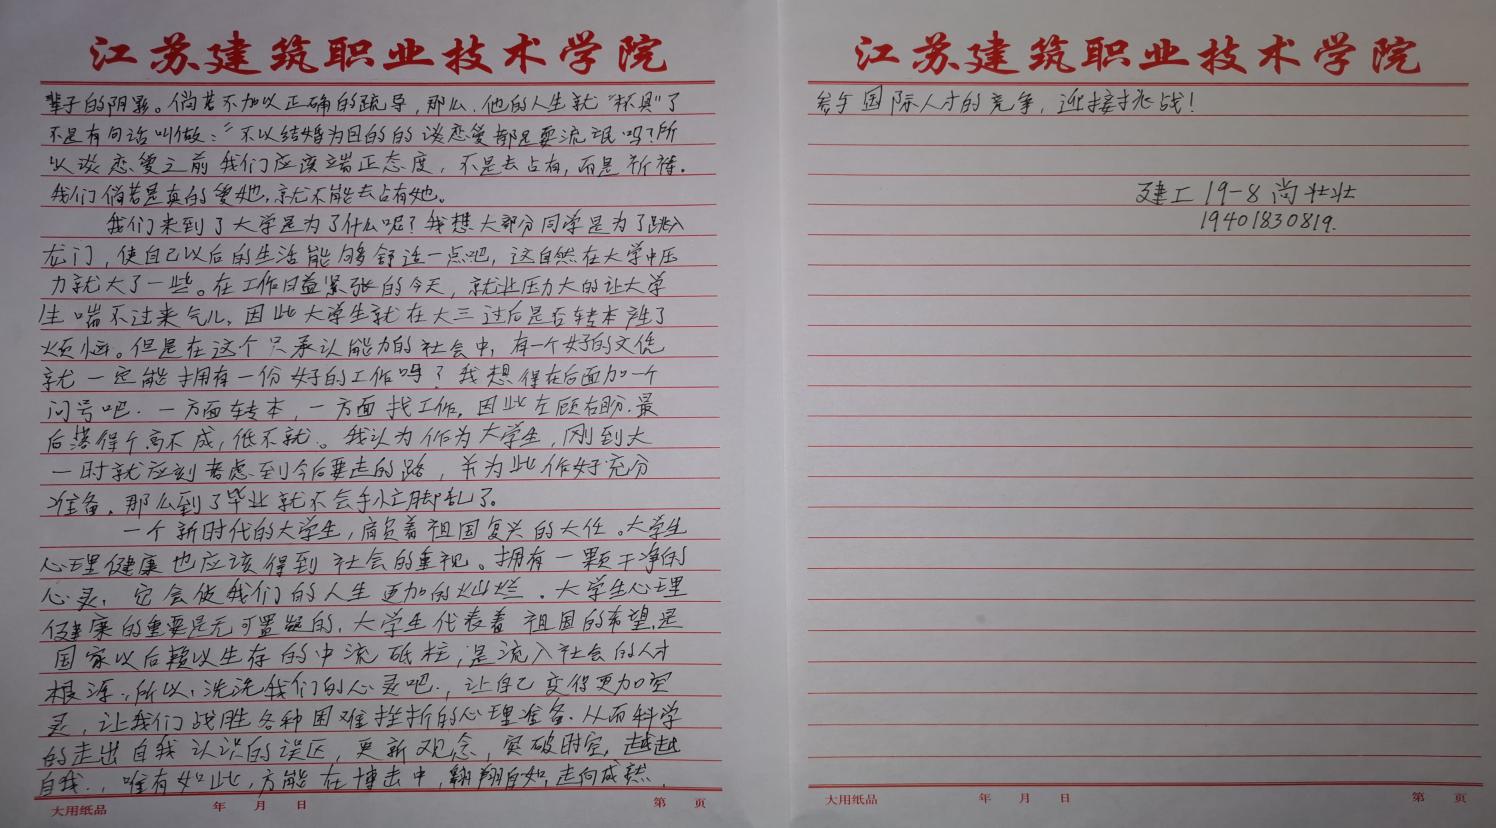 江苏建筑职业技术学院
辈子的阴影。倘若不加以正确的疏导,那么.他的人生就"杯具"了
不是有句话叫做:"不以结婚为目的的谈恋爱都是耍流氓吗?所
以谈恋爱之前我们应该端正态度,不是去占有,而是祈祷.
我们倘若是真的爱她,就不能去占有她。
我们来到了大学是为了什么呢?我想大部分同学是为了跳
龙门,使自己以后的生活能够舒适一点吧,这自然在大学中压
力就大了一些。在工作日益紧张的今天,就业压力大的让大学
生喘不过来气儿,因此大学生就在大三过后是否转本产生了
烦恼。但是在这个只承认能力的社会中,有一个好的文凭
就一定能拥有一份好的工作吗?我想得在后面加一个
问号吧.一方面转本,一方面找工作,因此左顾右盼.最
后落得个高不成,低不就。我认为作为大学生,刚到大
一时就应刻考虑到今后要走的路,并为此作好充分
准备,那么到了毕业就不会手忙脚乱了。
一个新时代的大学生,肩负着祖国复兴的大任。大学生
心理健康也应该得到社会的重视。拥有一颗干净的
心灵,它会使我们的人生更加的灿烂.大学生心理
健康的重要是无可置疑的,大学生代表着祖国的希望,是
国家以后赖以生存的中流砥柱,是流入社会的人才
根源.所以,洗洗我们的心灵吧.,让自己变得更加空
灵,让我们战胜各种困难挫折的心理准备.从而科学
的走出自我认识的误区,更新观念,突破时空,越越
自我.,唯有如此,方能在搏击中,翱翔自如,走向成熟,
大用纸品 年 月 日 第 页
江苏建筑职业技术学院
参与国际人才的竞争,迎接挑战!
建工19-8 尚壮壮
19401830819.
大用纸品 年 月 日 第 页